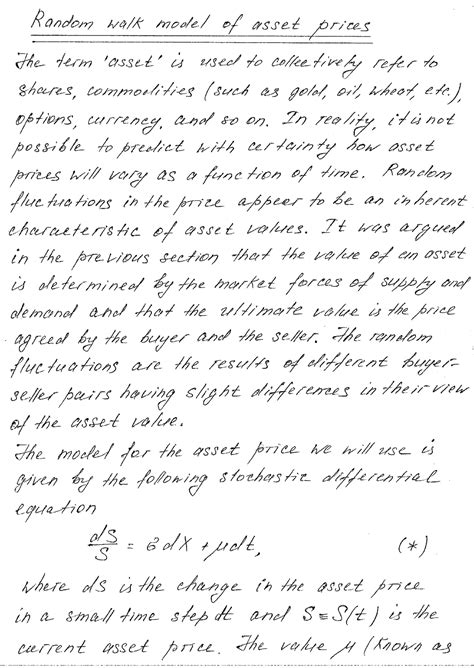 Random walk model of asset prices
The term 'asset' is used to collectively refer to
shares, commodities (such as gold, oil, wheat, etc.),
options, currency, and so on. In reality, it is not
possible to predict with certainty how asset
prices will vary as a function of time. Random
fluctuations in the price appear to be an inherent
characteristic of asset values. It was argued
in the previous section that the value of an asset
is determined by the market forces of supply and
demand and that the ultimate value is the price
agreed by the buyer and the seller. The random
fluctuations are the results of different buyer-
seller pairs having slight differences in their view
of the asset value.
The model for the asset price we will use is
given by the following stochastic differential
equation
dS/S = σdX + μdt, (*)
where dS is the change in the asset price
in a small time step dt and S≡S(t) is the
current asset price. The value μ (known as